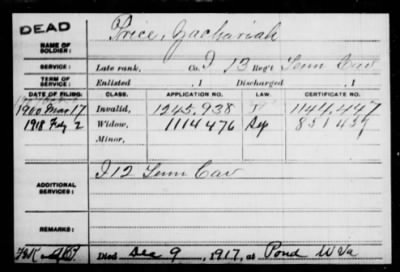 DEAD
NAME OF SOLDIER: Price, Zachariah
SERVICE: Late rank, Co. I 13 Reg't Tenn Cav
TERM OF SERVICE: Enlisted , 1 Discharged , 1
DATE OF FILING. CLASS. APPLICATION NO. LAW. CERTIFICATE NO.
1900 Mar 17 Invalid, 1245.938 1144.447
1918 Feby 2 Widow, 1114476 Sep 851439
Minor,
ADDITIONAL SERVICES: I 12 Tenn Cav
REMARKS:
Died Dec 9, 1917, at Pond W Va